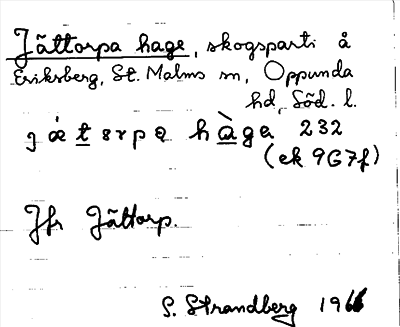 Jättorpa hage, skogsparti å
Eriksberg, St. Malms sn, Oppunda
hd, Söd. l.
jǽtɜrpa hàga 232
(ek 9G7f)
Jfr Jättorp.
S. Strandberg 1966